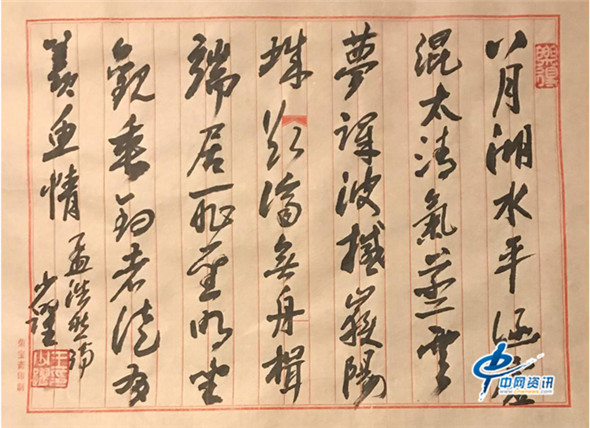 八月湖水平涵虛
混太清氣蒸雲
夢澤波撼嶽陽
城欲濟無舟楫
端居恥聖明坐
觀垂釣者徒有
羨魚情
孟浩然詩
中网资讯